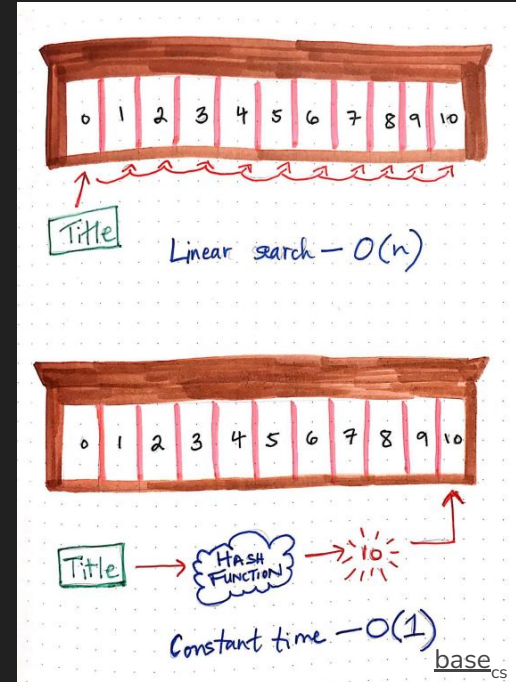 0 1 2 3 4 5 6 7 8 9 10
Title
Linear search – O(n)
0 1 2 3 4 5 6 7 8 9 10
Title
HASH
FUNCTION
10
Constant time – O(1)
base
cs